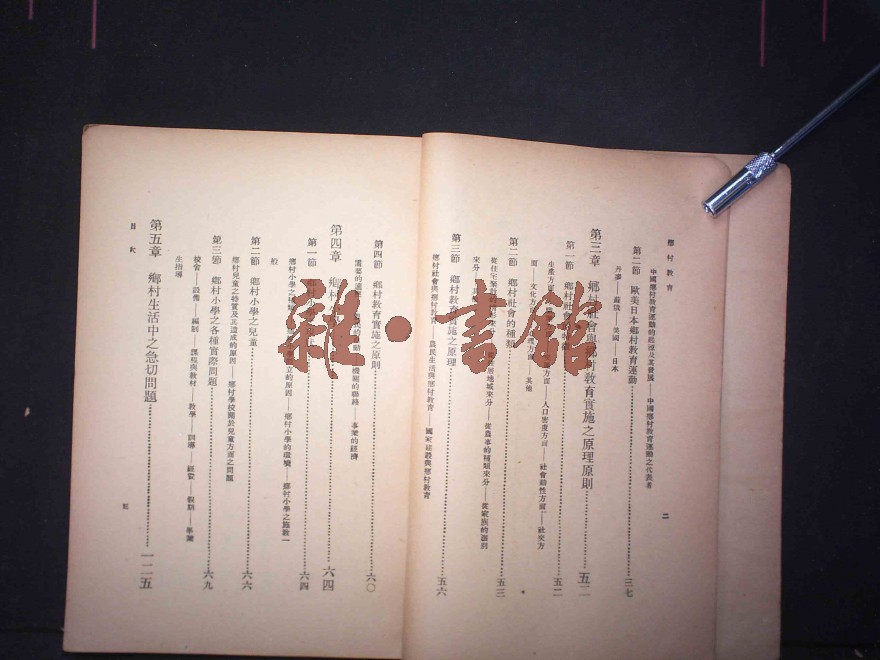 鄉村教育
二
中國鄉村教育運動的經過及其發展——中國鄉村教育運動之代表者
第二節 歐美日本鄉村教育運動 三七
丹麥——蘇俄——美國——日本
第三章 鄉村社會與鄉村教育實施之原理原則 五二
第一節 鄉村社會 五二
生產方面 方面——人口密度方面——社會動性方面——社交方
面——文化方 方面——其他
第二節 鄉村社會的種類 五三
從住宅聚散 來分——從農事的種類來分——從家族的派別
來分——其
第三節 鄉村教育實施之原理 五六
鄉村社會與鄉村教育——農民生活與鄉村教育——國家建設與鄉村教育
第四節 鄉村教育實施之原則 六〇
需要的適應 機關的聯絡——事業的經濟
第四章 鄉村 六四
第一節 鄉村小學 六四
鄉村小學之種類 立的原因——鄉村小學的環境——鄉村小學之施教一
般
第二節 鄉村小學之兒童 六六
鄉村兒童之特質及其造成的原因——鄉村學校關於兒童方面之問題
第三節 鄉村小學之各種實際問題 六九
校舍——設備——編制——課程與教材——教學——訓導——經費——假期——畢業
生指導
第五章 鄉村生活中之急切問題 一二五
目次
雜·書館